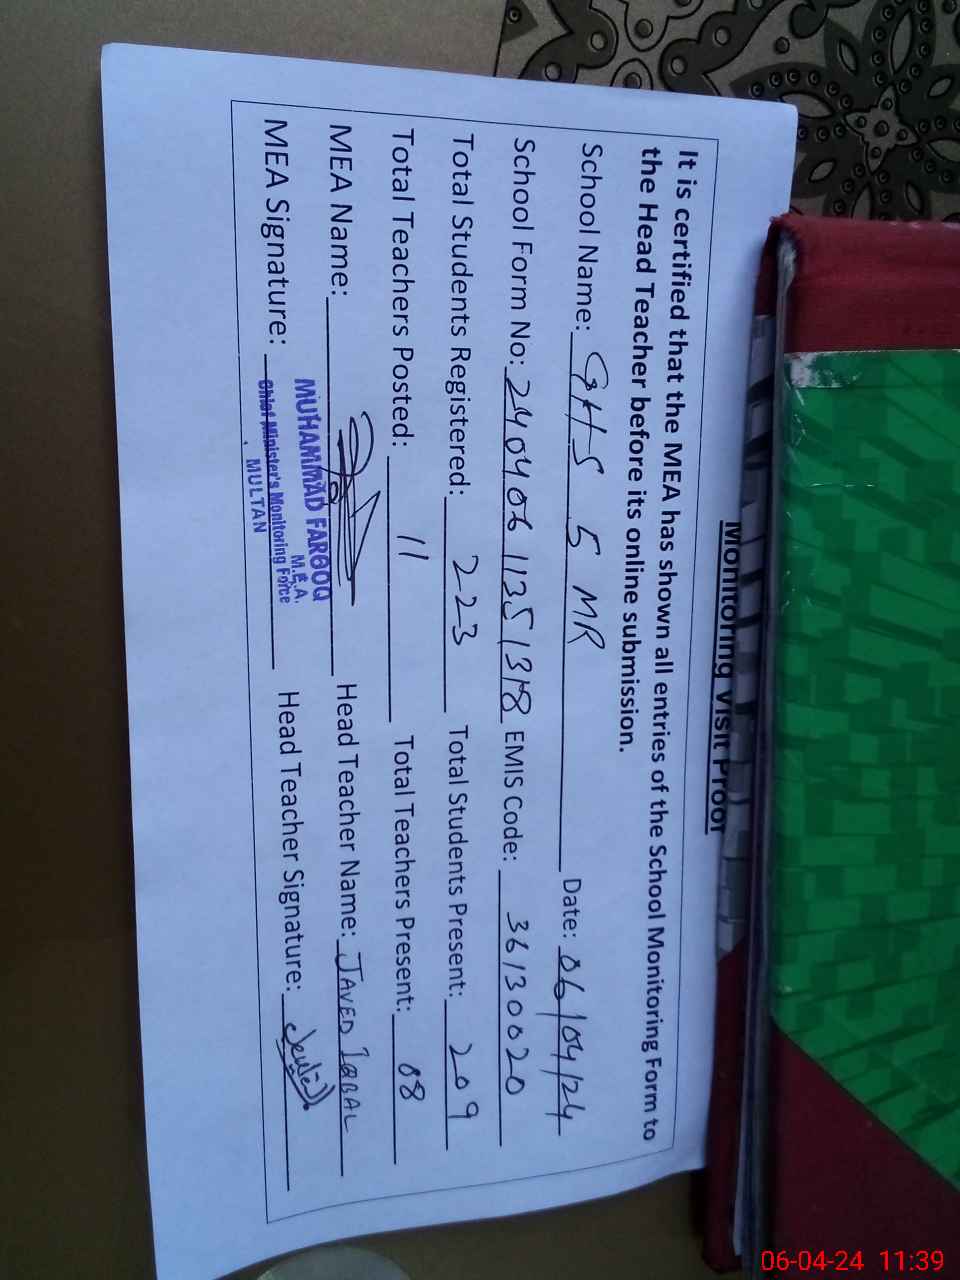 Monitoring Visit Proof
It is certified that the MEA has shown all entries of the School Monitoring Form to
the Head Teacher before its online submission.
School Name: GHS 5 MR Date: 06/04/24
School Form No: 24040611351318 EMIS Code: 36130020
Total Students Registered: 223 Total Students Present: 209
Total Teachers Posted: 11 Total Teachers Present: 08
MEA Name: Head Teacher Name: JAVED IQBAL
MUHAMMAD FAROOQ
M.E.A.
MEA Signature: Head Teacher Signature:
Chief Minister's Monitoring Force
MULTAN
06-04-24 11:39